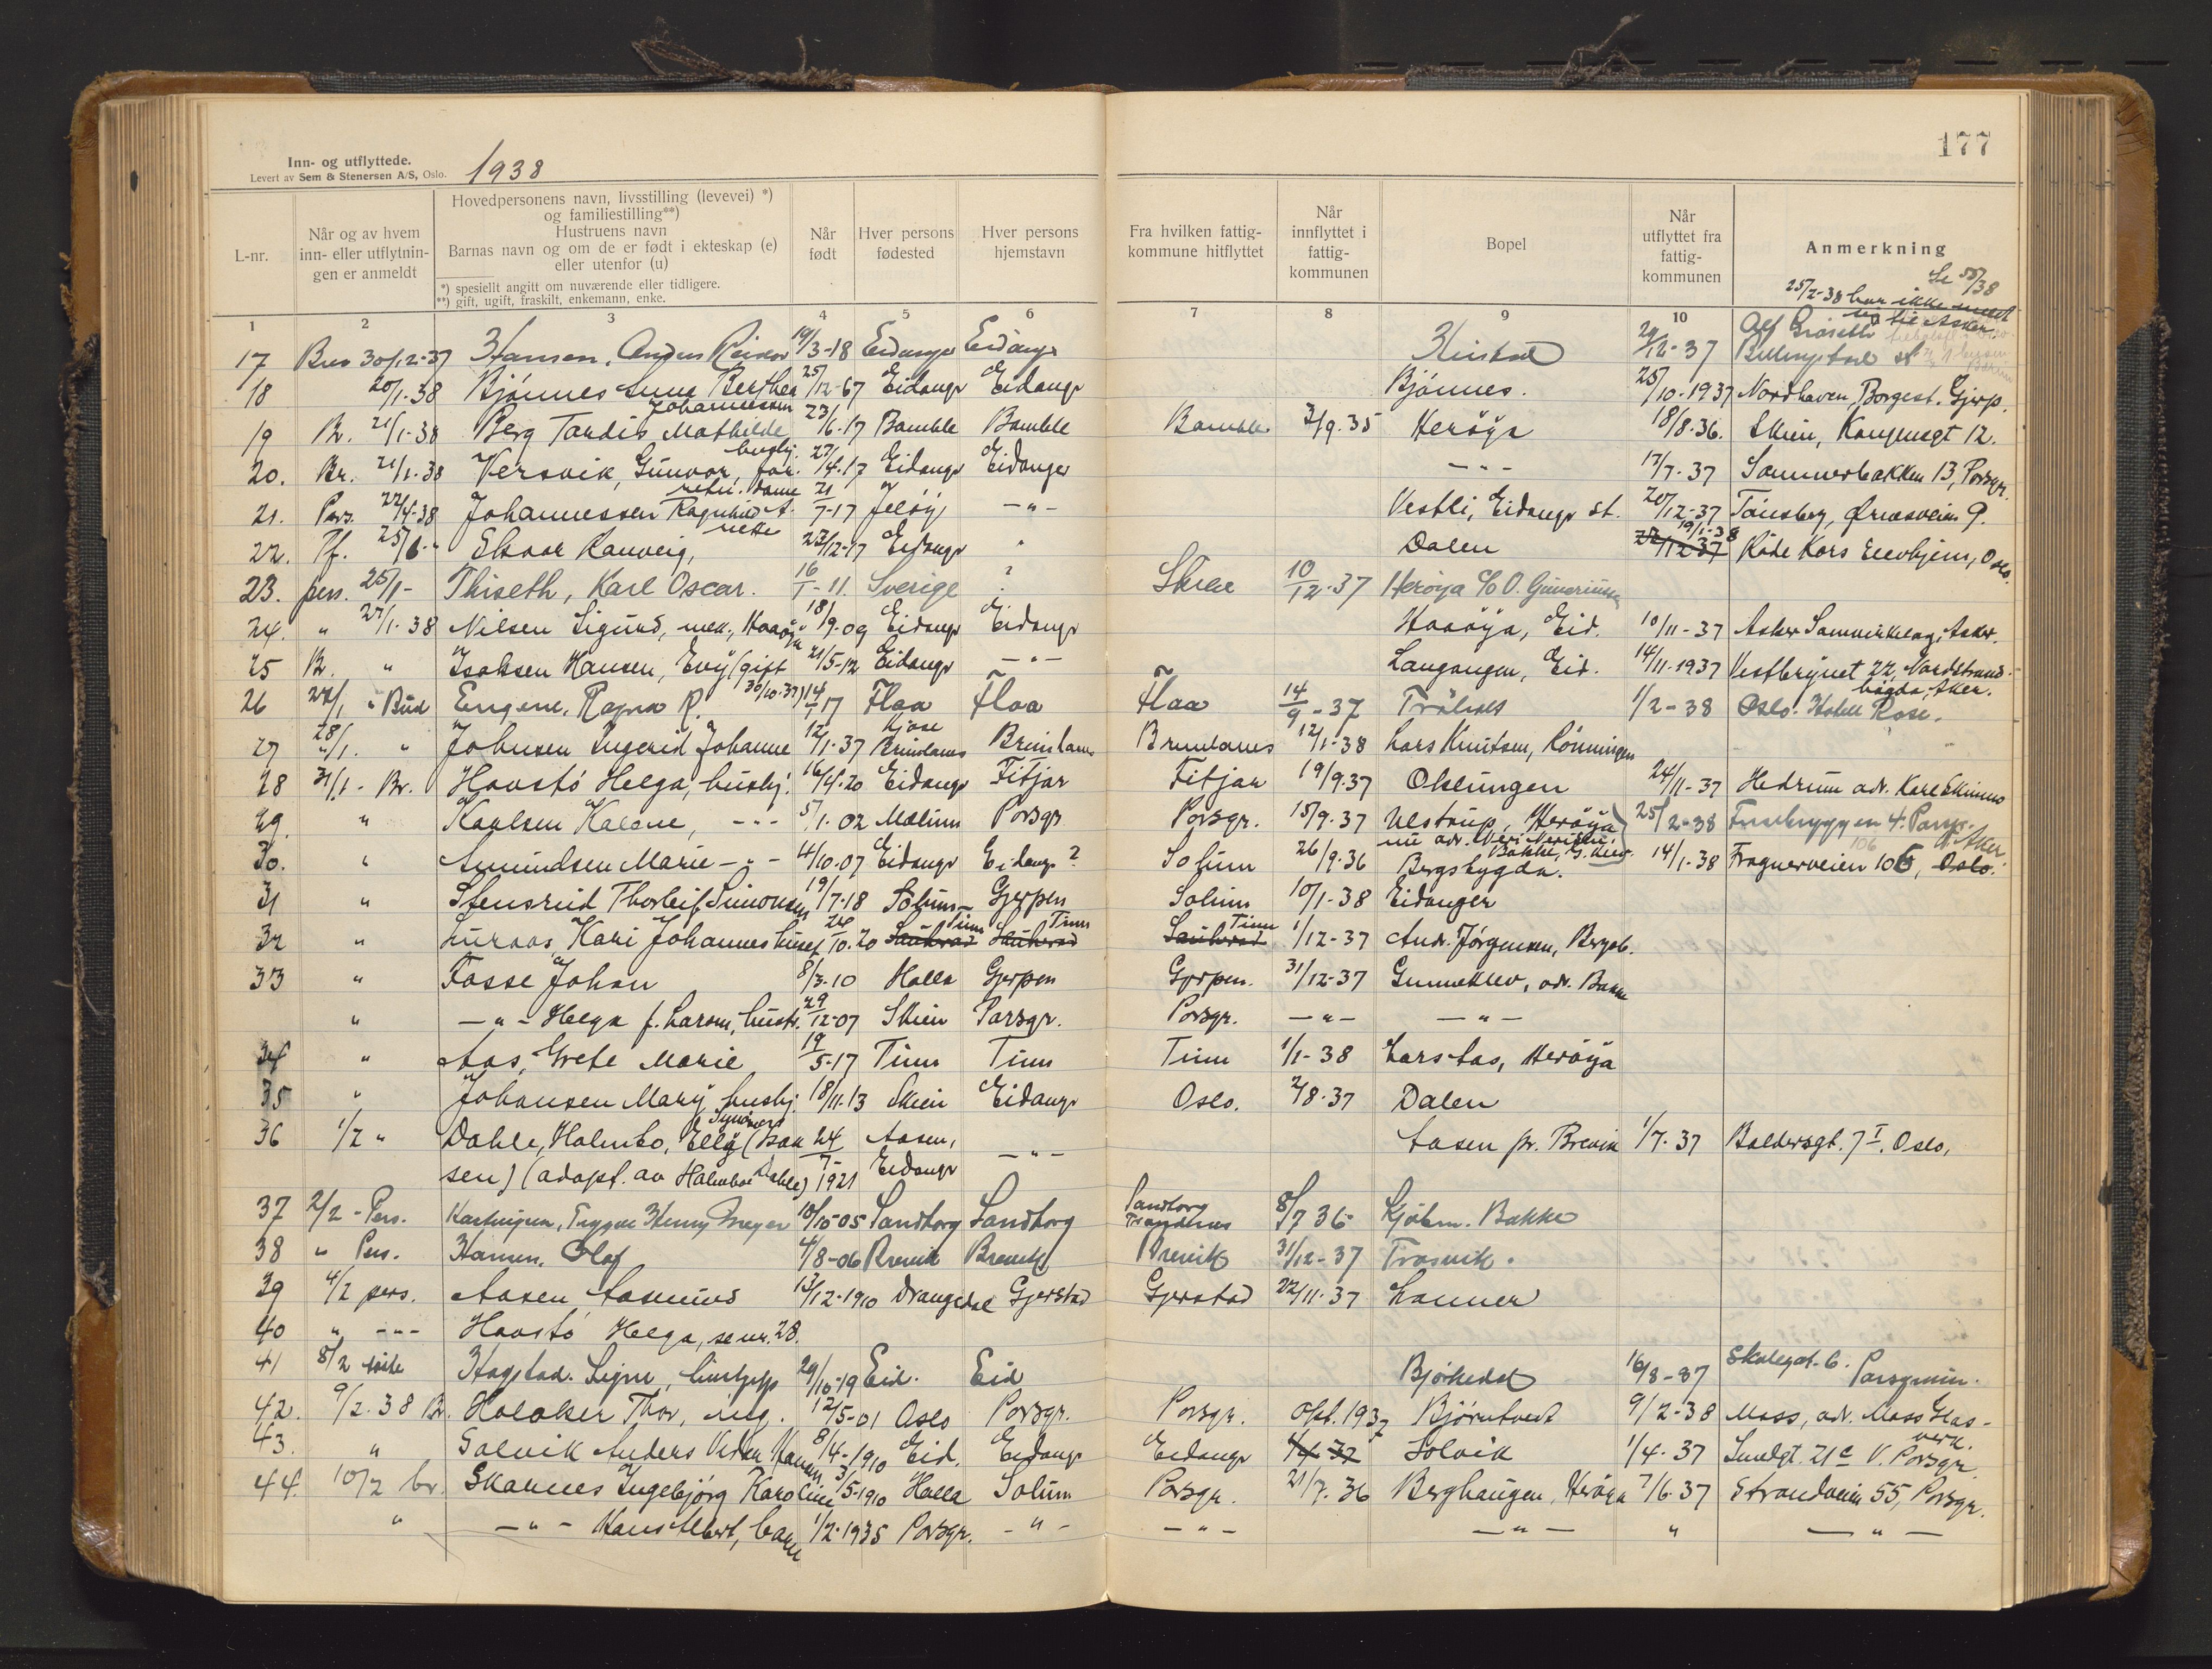 177
Inn- og utflyttede.
Levert av Sem & Stenersen A/S, Oslo. 1938
L-nr.
Når og av hvem
inn- eller utflytnin-
gen er anmeldt
Hovedpersonens navn, livsstilling (levevei) *)
og familiestilling**)
Hustruens navn
Barnas navn og om de er født i ekteskap (e)
eller utenfor (u)
*) spesiellt angitt om nuværende eller tidligere.
**) gift, ugift, fraskilt, enkemann, enke.
Når
født
Hver persons
fødested
Hver persons
hjemstavn
Fra hvilken fattig-
kommune hitflyttet
Når
innflyttet i
fattig-
kommunen
Bopel
Når
utflyttet fra
fattig-
kommunen
Anmerkning
Se 55/38
25/2-38 har ikke
1 2 3 4 5 6 7 8 9 10
17 Bud 30/12-37 Hansen, Anders 19/3-18 Eidanger Eidanger 29/12-37 Billingstad st
18 20/1-38 Bjønnes Anna Berthea 25/12-67 Eidangr Eidangr Bjønnes. 25/10-1937 Nordhaven, Borgest. Gjerp.
Johannessen
19 Br. 21/1-38 Berg Tordis Mathilde 23/6-17 Bamble Bamble Bamble 3/9.35 Herøya 18/8.36. Skien, Kongensgt 12.
hushj.
20. Br. 21/1-38 Versvik, Gunvor, 27/4-17 Eidangr Eidanger -"- 17/7-37 Sommerbakken 13, Porsgr.
21. Pers. 22/4-38 Johannessen Ragnhild A. 21/7-17 Jeløy -"- Vestli, Eidangr st. 20/12-37 Tønsberg, Ørnesveien 9.
nette
22. Tf. 25/1 -" Ekaas Ranveig, 23/12-17 Eidangr " Dalen 22/12 37 19/1-38 Røde Kors Elevhjem, Oslo.
23. pers. 25/1- Thiseth, Karl Oscar. 16/1-11. Sverige ? Skien 10/12-37 Herøya c/o O. Gunerius
24. " 27/1-38 Nilsen Sigurd, mek., Haaøya 18/9-09 Eidangr Eidangr Haaøya, Eid. 10/11-37 Asker Samvirkelag, Asker.
25 Br. " Isaksen Hansen, Evy (gift 21/5-12 Eidangr -"- Langangen, Eid. 14/11-1937 Vestbrynet 22, Nordstrand-
30/10-37) høgda, Aker.
26 27/1 " Bud Engene, Ragna R. 14/1 17 Flaa Flaa Flaa 14/9-37 1/2-38 Oslo. Hotell Rose.
Kjose
27 28/1 " Johnsen Ingerid Johanne 12/1-37 Brunlanes Brunlanes Brunlanes 12/1-38 Lars Knutsen, Rønningen
28 31/1 - Br. Haavstø Helga, hushj. 16/4-20 Eidangr Fitjar Fitjar 19/9.37 Oklungen 24/11-37 Hedrum adr. Karl Skinmo
29. " Karlsen Kalene, -"- 5/1-02 Mælum Porsgr Porsgr. 15/9-37 Ulstrup, Herøya 25/2-38 Fruebryggen 4. Porsgr.
30. " Amundsen Marie -"- 4/10.07 Eidangr Eidangr? Solum 26/9.36 Bergsbygda. 14/1-38 Frognerveien 106, Oslo. V. Aker
31 " Stensrud Thorleif Simonsen 19/7-18 Solum Gjerpen Solum 10/1-38 Eidanger
Tinn Tinn Tinn
32 " Luraas Kari Johannes hush. 24/10.20 Sauherad Sauherad Sauherad 1/12-37 And. Jørgensen, Bergsb.
33 " Fosse Johan 8/3-10 Holla Gjerpen Gjerpen. 31/12-37 Gunneklev, adr. Bakke
" -"- Helga f. Larsen, hustr. 29/12-07 Skien Porsgr. Porsgr. -"- -"-
34 " Aas, Grete Marie 19/5-17 Tinn Tinn Tinn 1/1-38 Lars Aas, Herøya
35 " Johansen Mary hushj. 18/11-13 Skien Eidangr Oslo. 2/8-37 Dalen
Synnøve
36 1/2 " Dahle, Holmbo, Elly (Isak- 24/7- Aasen, Aasen pr. Brevik 1/7-37 Baldersgt. 7 I. Oslo.
sen) (adopt. av Halmboe Dahle) 1921 Eidangr -"-
37 2/2 - Pers. Tryggve Henry Meyer 10/10-05 Sandtorg Sandtorg Sandtorg 8/7 36 Kjøbm. Bakke
Trondenes
38 " Pers. Hansen, Olaf 4/8-06 Brevik Brevik Brevik 31/12-37 Trosvik.
39 4/2 pers. Aasen Aasmund 13/12-1910 Drangedal Gjerstad Gjerstad 22/11-37 Lanner
40 " -"- Haavstø Helga, se nr. 28.
41 8/2 Hogstad. Signe, 29/10-19 Eid. Eid Bjørkedal 16/8-37 Skolegat. 6. Porsgrunn.
42. 9/2.38 Br. Holoker Thor, 12/5-01 Oslo Porsgr. Porsgr. okt. 1937 Bjørntvedt 9/2-38 Moss, adr. Moss Glas-
verk.
43. " Solvik Anders Hansen 8/4-1910 Eid. Eidangr Eidangr 1/4-37 Solvik 1/4-37 Smedgt. 21c V. Porsgr.
44. 10/2 br. Skarnes Ingebjørg Karoline 3/5-1910 Holla Solum Porsgr. 21/7.36 Berghaugen, Herøya 7/6.37 Strandveien 55, Porsgr.
" -"- Hans Albert, barn 1/2-1935 Porsgr. -"- -"- -"- " -"-